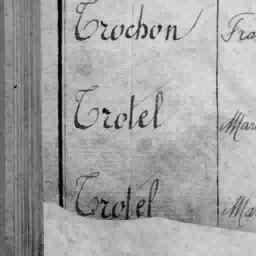 Trochon Fra
Trotel Mar
Trotel Ma